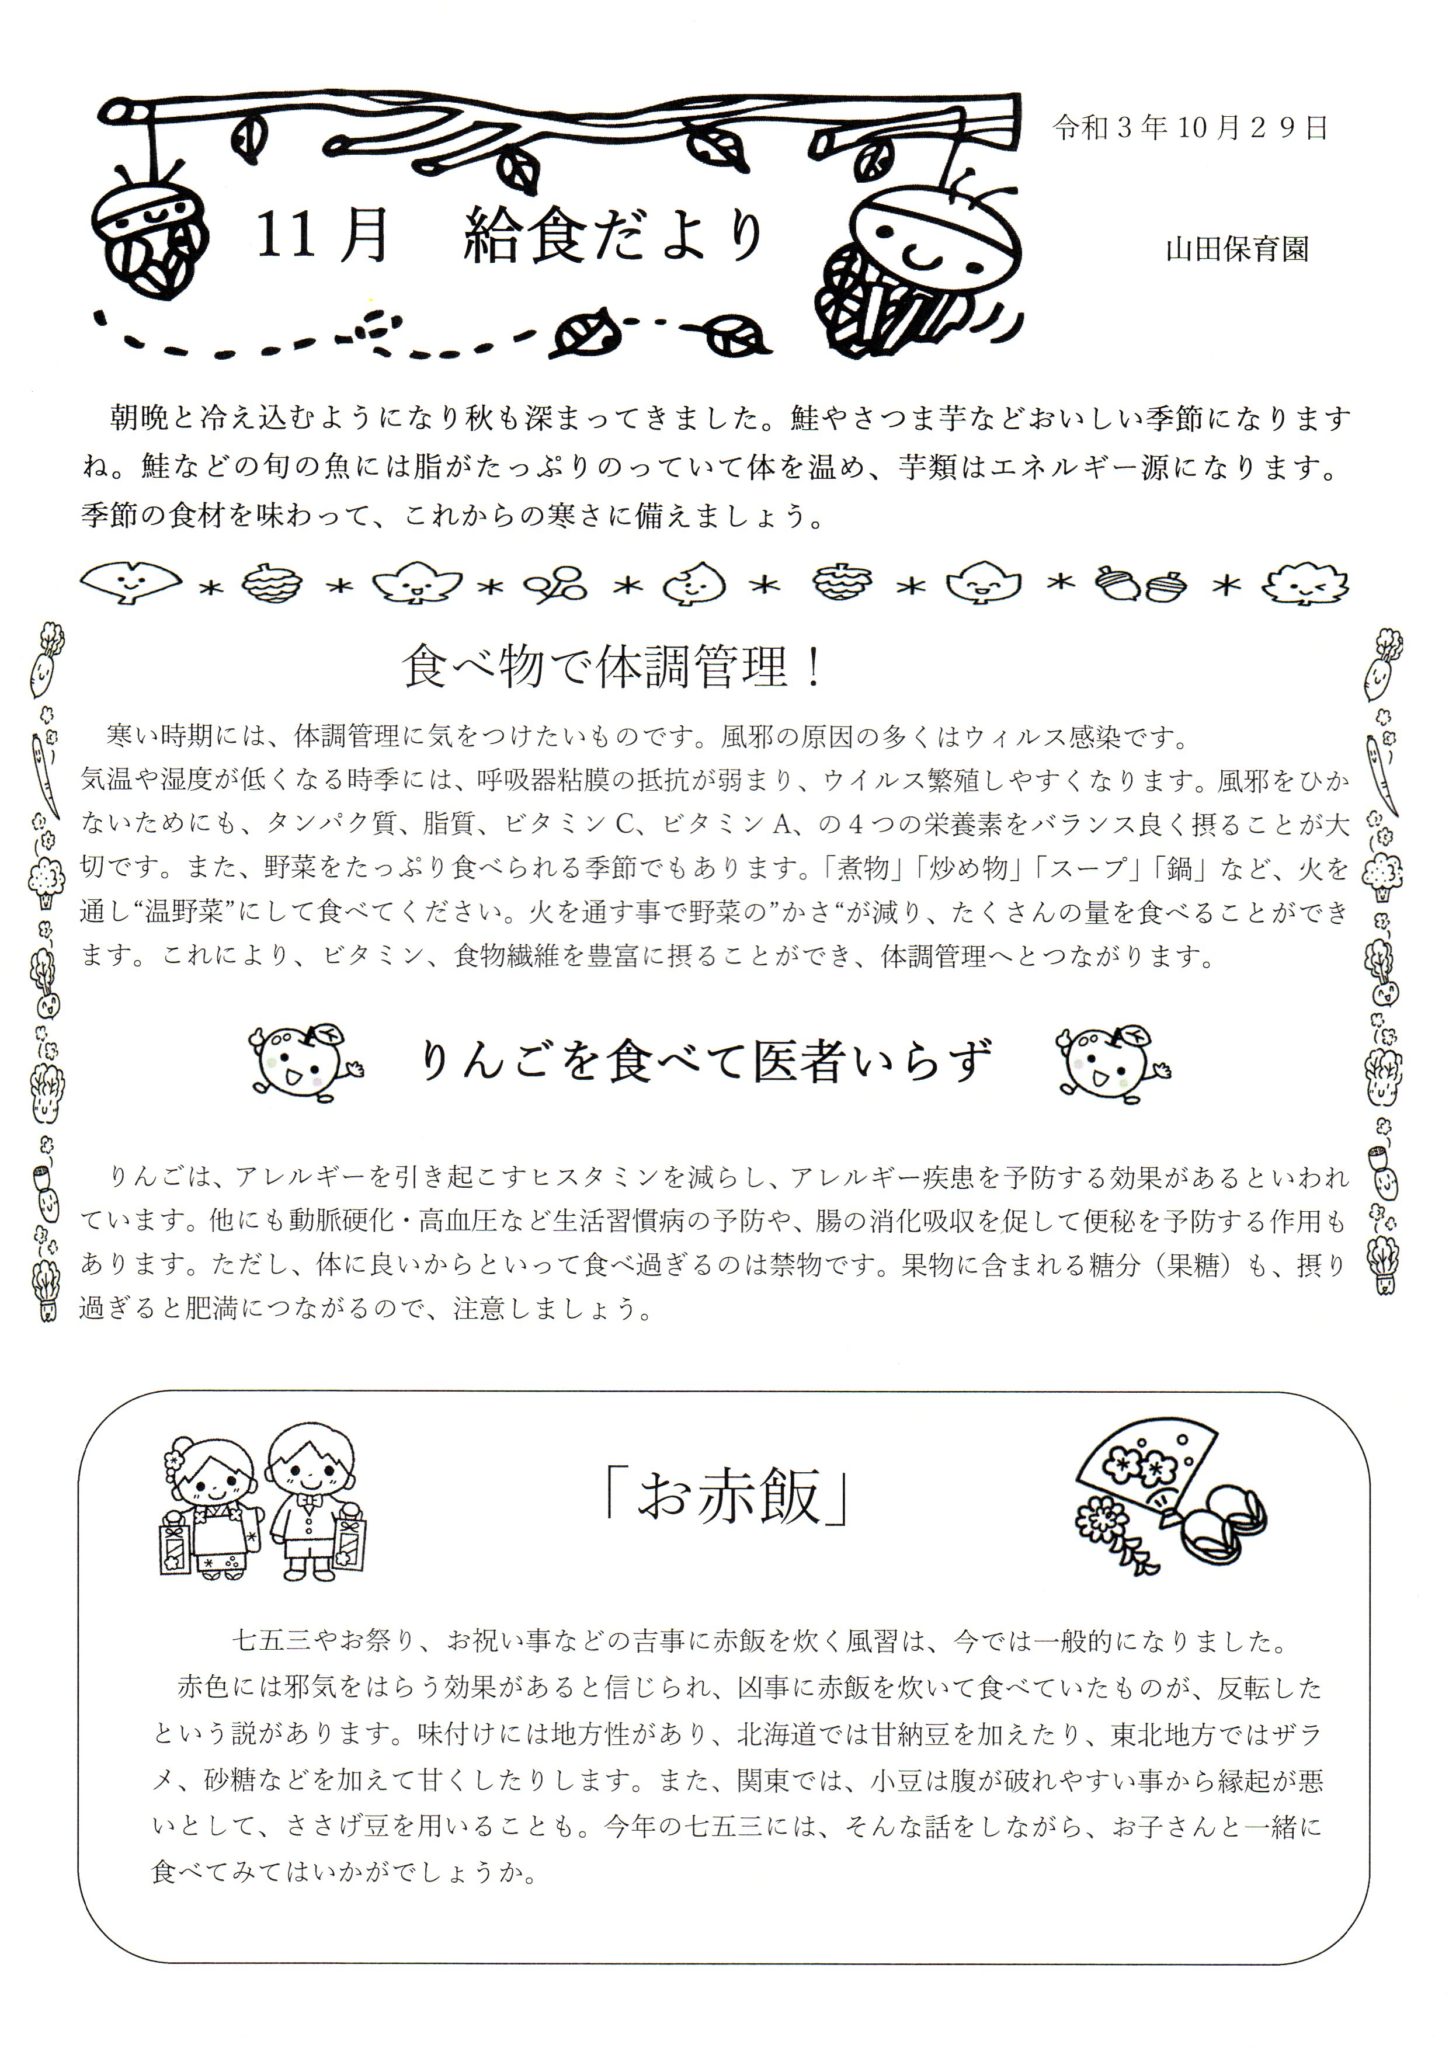 令和３年 10 月２９日
11 月　給食だより
山田保育園
朝晩と冷え込むようになり秋も深まってきました。鮭やさつま芋などおいしい季節になります
ね。鮭などの旬の魚には脂がたっぷりのっていて体を温め、芋類はエネルギー源になります。
季節の食材を味わって、これからの寒さに備えましょう。
食べ物で体調管理！
寒い時期には、体調管理に気をつけたいものです。風邪の原因の多くはウィルス感染です。
気温や湿度が低くなる時季には、呼吸器粘膜の抵抗が弱まり、ウイルス繁殖しやすくなります。風邪をひか
ないためにも、タンパク質、脂質、ビタミン C、ビタミン A、の４つの栄養素をバランス良く摂ることが大
切です。また、野菜をたっぷり食べられる季節でもあります。「煮物」「炒め物」「スープ」「鍋」など、火を
通し“温野菜”にして食べてください。火を通す事で野菜の”かさ“が減り、たくさんの量を食べることができ
ます。これにより、ビタミン、食物繊維を豊富に摂ることができ、体調管理へとつながります。
りんごを食べて医者いらず
りんごは、アレルギーを引き起こすヒスタミンを減らし、アレルギー疾患を予防する効果があるといわれ
ています。他にも動脈硬化・高血圧など生活習慣病の予防や、腸の消化吸収を促して便秘を予防する作用も
あります。ただし、体に良いからといって食べ過ぎるのは禁物です。果物に含まれる糖分（果糖）も、摂り
過ぎると肥満につながるので、注意しましょう。
「お赤飯」
七五三やお祭り、お祝い事などの吉事に赤飯を炊く風習は、今では一般的になりました。
赤色には邪気をはらう効果があると信じられ、凶事に赤飯を炊いて食べていたものが、反転した
という説があります。味付けには地方性があり、北海道では甘納豆を加えたり、東北地方ではザラ
メ、砂糖などを加えて甘くしたりします。また、関東では、小豆は腹が破れやすい事から縁起が悪
いとして、ささげ豆を用いることも。今年の七五三には、そんな話をしながら、お子さんと一緒に
食べてみてはいかがでしょうか。